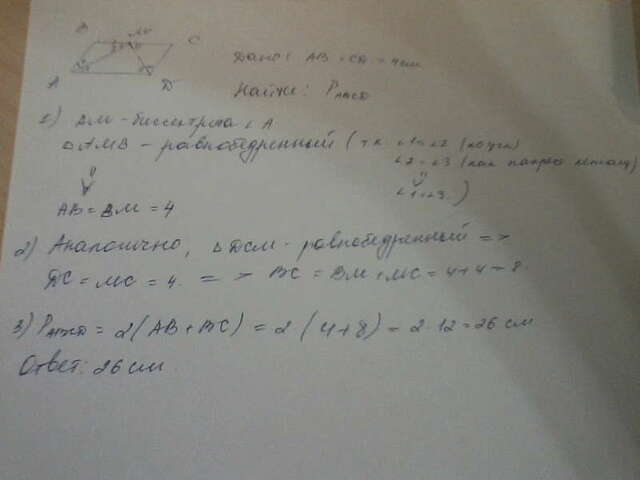 B M C
A D
Дано: AB = CD = 4см
Найти: P
1) AM - биссектриса ∠ A
△ AMB - равнобедренный ( т.к. ∠1=∠2
∠2=∠3 (как накрест лежащ)
⇓ ⇓
∠1=∠3 )
AB = BM = 4
2) Аналогично, △ DCM - равнобедренный =>
DC = MC = 4. => BC = BM + MC = 4+4=8.
3) P = 2 (AB + BC) = 2 · (4+8) = 2·12 = 26 см
Ответ: 26 см.